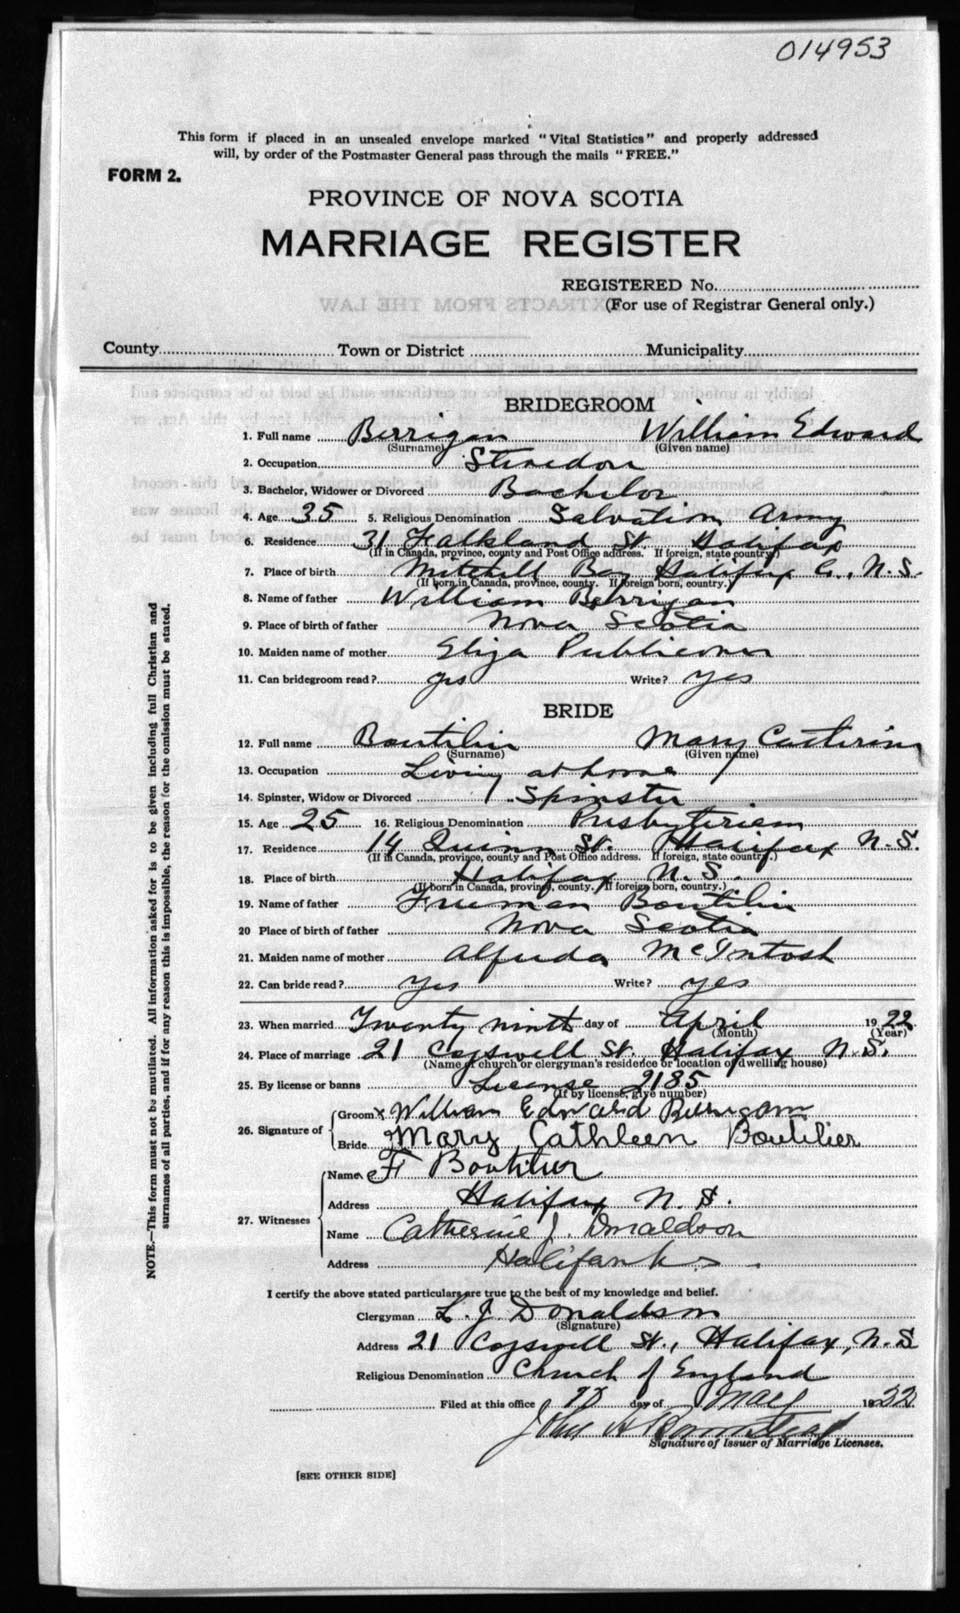 014953
This form if placed in an unsealed envelope marked "Vital Statistics" and properly addressed
will, by order of the Postmaster General pass through the mails "FREE."
FORM 2.
PROVINCE OF NOVA SCOTIA
MARRIAGE REGISTER
REGISTERED No.
(For use of Registrar General only.)
County Town or District Municipality
BRIDEGROOM
1. Full name Berrigan William Edward
(Surname) (Given name)
2. Occupation Stevedor
3. Bachelor, Widower or Divorced Bachelor
4. Age 35 5. Religious Denomination Salvation Army
6. Residence 31 Falkland St. Halifax
(If in Canada, province, county and Post Office address. If foreign, state country.)
7. Place of birth Mitchell Bay Halifax Co., N.S.
(If born in Canada, province, county. If foreign born, country.)
8. Name of father William Berrigan
9. Place of birth of father Nova Scotia
10. Maiden name of mother Eliza Publicover
11. Can bridegroom read? yes Write? yes
BRIDE
12. Full name Boutilier Mary Catherine
(Surname) (Given name)
13. Occupation Living at home
14. Spinster, Widow or Divorced Spinster
15. Age 25 16. Religious Denomination Presbyterian
17. Residence 14 Quinn St. Halifax N.S.
(If in Canada, province, county and Post Office address. If foreign, state country.)
18. Place of birth Halifax N.S.
(If born in Canada, province, county. If foreign born, country.)
19. Name of father Freeman Boutilier
20 Place of birth of father Nova Scotia
21. Maiden name of mother Alfreda McIntosh
22. Can bride read? Yes Write? yes
23. When married Twenty ninth day of April 1922
(Month) (Year)
24. Place of marriage 21 Cogswell St. Halifax N.S.
(Name of church or clergyman's residence or location of dwelling house)
25. By license or banns License 2185
(If by license, give number)
26. Signature of
Groom x William Edward Berrigan
Bride Mary Cathleen Boutilier
27. Witnesses
Name F Boutilier
Address Halifax N.S.
Name Catherine J. Donaldson
Address Halifax N.S.
I certify the above stated particulars are true to the best of my knowledge and belief.
Clergyman L. J. Donaldson
(Signature)
Address 21 Cogswell St., Halifax, N.S
Religious Denomination Church of England
Filed at this office day of May 1922
John H
Signature of Issuer of Marriage Licenses.
[SEE OTHER SIDE]
NOTE.—This form must not be mutilated. All information asked for is to be given including full Christian and
surnames of all parties, and if for any reason this is impossible, the reason for the omission must be stated.